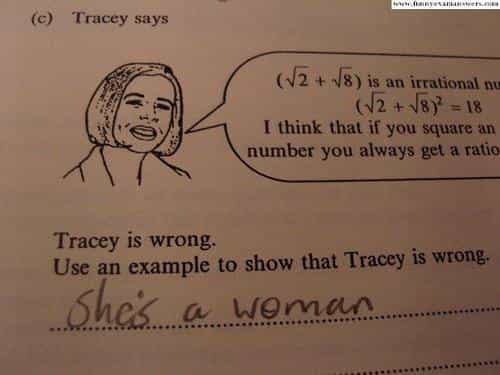 www.funnyexamanswers.com
(c) Tracey says
(√2 + √8) is an irrational nu
(√2 + √8)² = 18
I think that if you square an
number you always get a ratio
Tracey is wrong.
Use an example to show that Tracey is wrong.
She's a woman